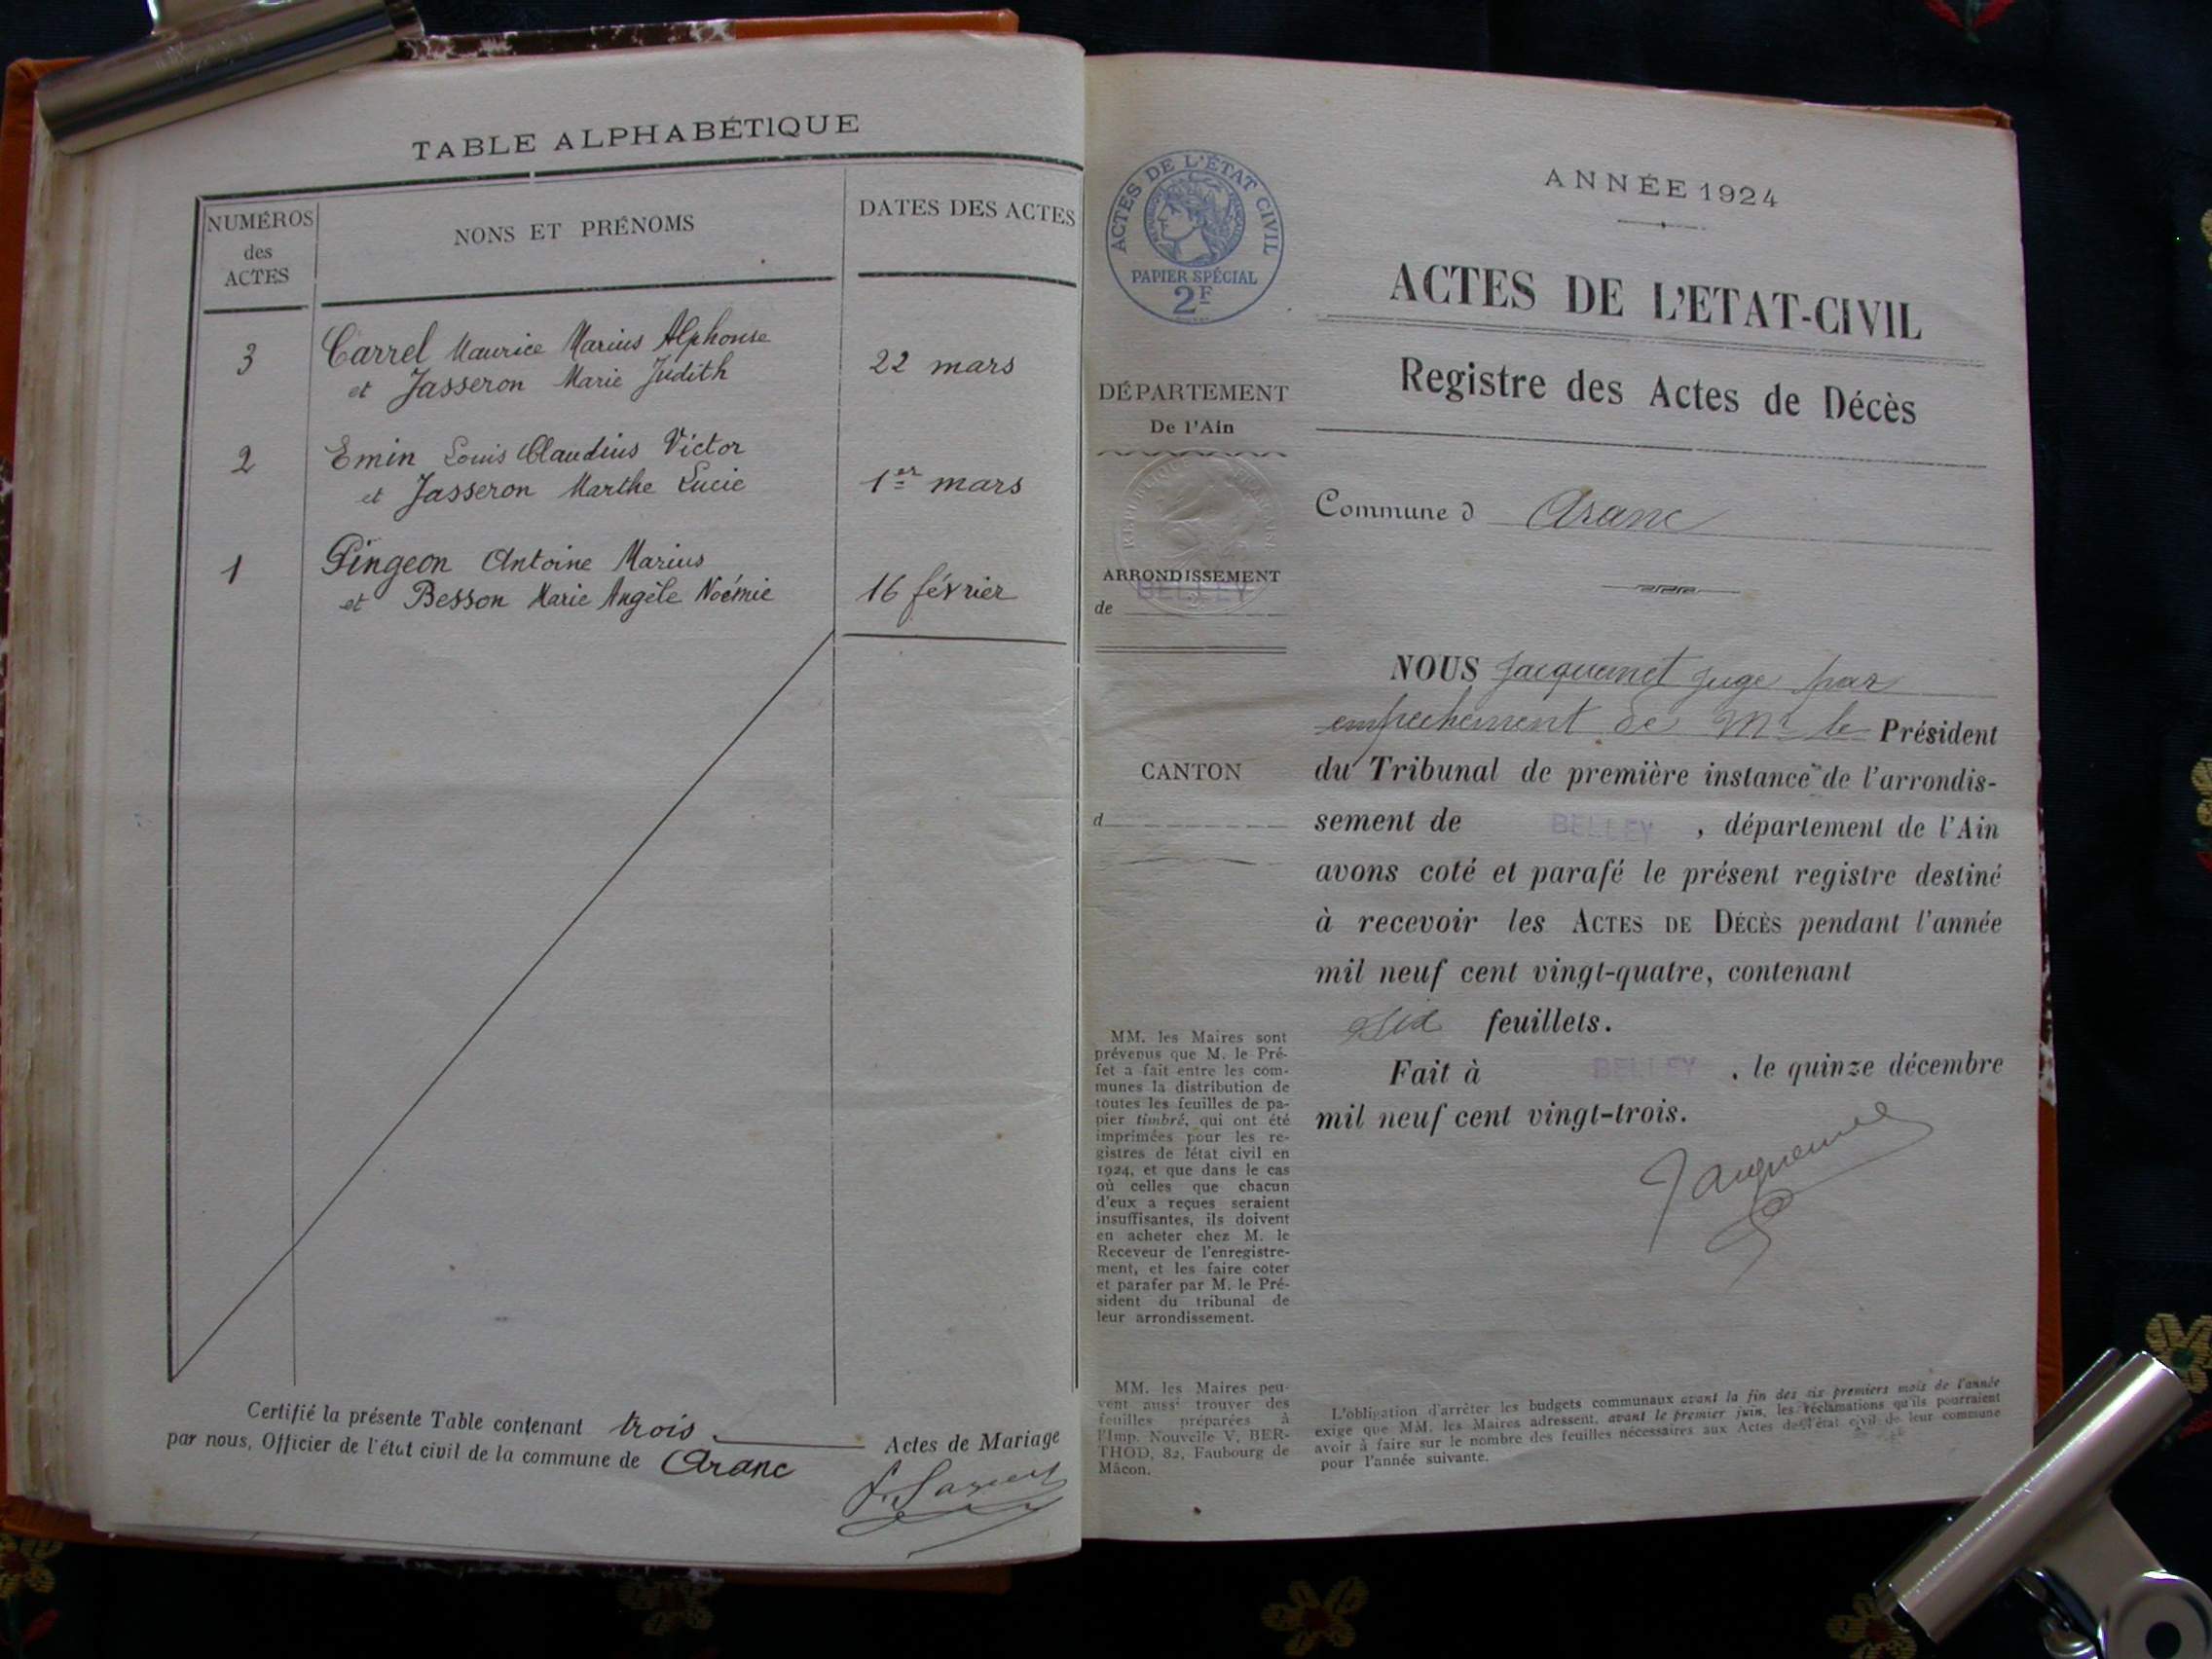 TABLE ALPHABÉTIQUE
NUMÉROS
des
ACTES
NONS ET PRÉNOMS
DATES DES ACTES
3
Carrel Maurice Marius Alphonse
et Jasseron Marie Judith
22 mars
2
Emin Louis Claudius Victor
et Jasseron Marthe Lucie
1er mars
1
Pingeon Antoine Marius
et Besson Marie Angèle Noémie
16 février
Certifié la présente Table contenant trois Actes de Mariage
par nous, Officier de l'état civil de la commune de Aranc
ACTES DE L'ÉTAT CIVIL
PAPIER SPÉCIAL
2F
DÉPARTEMENT
De l'Ain
ARRONDISSEMENT
de BELLEY
CANTON
d
MM. les Maires sont
prévenus que M. le Pré-
fet a fait entre les com-
munes la distribution de
toutes les feuilles de pa-
pier timbré, qui ont été
imprimées pour les re-
gistres de létat civil en
1924, et que dans le cas
où celles que chacun
d'eux a reçues seraient
insuffisantes, ils doivent
en acheter chez M. le
Receveur de l'enregistre-
ment, et les faire coter
et parafer par M. le Pré-
sident du tribunal de
leur arrondissement.
MM. les Maires peu-
vent aussi trouver des
feuilles préparées à
l'Imp. Nouvelle V. BER-
THOD, 82, Faubourg de
Mâcon.
ANNÉE 1924
ACTES DE L'ETAT-CIVIL
Registre des Actes de Décès
Commune d Aranc
NOUS Jacquemet juge par
empechement de Mr le Président
du Tribunal de première instance de l'arrondis-
sement de BELLEY, département de l'Ain
avons coté et parafé le présent registre destiné
à recevoir les ACTES DE DÉCÈS pendant l'année
mil neuf cent vingt-quatre, contenant
six feuillets.
Fait à BELLEY, le quinze décembre
mil neuf cent vingt-trois.
Jacquemet
L'obligation d'arrêter les budgets communaux avant la fin des six premiers mois de l'année
exige que MM. les Maires adressent, avant le premier juin, les réclamations qu'ils pourraient
avoir à faire sur le nombre des feuilles nécessaires aux Actes de l'état civil de leur commune
pour l'année suivante.